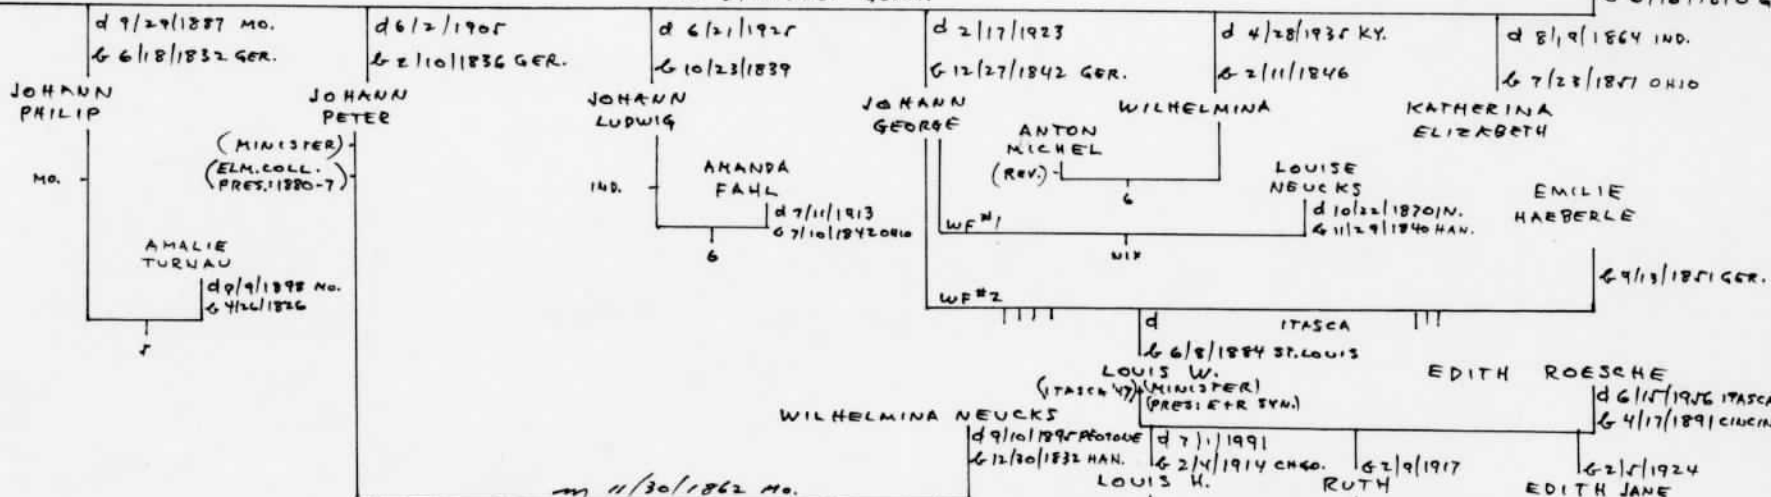 d 9/29/1887 MO.
b 6/18/1832 GER.
JOHANN
PHILIP
MO.
AMALIE
TURNAU
1898 MO.
b 4/26/1826
5
d 6/2/1905
b 2/10/1836 GER.
JOHANN
PETER
(MINISTER)
(ELM. COLL.
PRES: 1880-7)
d 6/21/1925
b 10/23/1839
JOHANN
LUDWIG
IND.
AMANDA
FAHL
d 7/11/1913
b 7/10/1842 OHIO
6
d 2/17/1923
b 12/27/1842 GER.
JOHANN
GEORGE
ANTON
MICHEL
(REV.)
6
d 4/28/1935 KY.
b 2/11/1846
WILHELMINA
d 8/19/1864 IND.
b 7/23/1851 OHIO
KATHERINA
ELIZABETH
LOUISE
NEUCKS
d 10/22/1870 IN.
b 11/29/1840 HAN.
WF #1
NIX
EMILIE
HAEBERLE
b 9/13/1851 GER.
WF #2
d
ITASCA
b 6/8/1884 ST. LOUIS
LOUIS W.
(ITASCA '47) (MINISTER)
(PRES: E+R SYN.)
EDITH ROESCHE
d 6/15/1956 ITASCA
b 4/17/1891 CINCIN
WILHELMINA NEUCKS
d 9/10/1895 PEOTONE
b 12/30/1832 HAN.
m 11/30/1862 MO.
d 7/1/1991
b 2/4/1914 CHGO.
LOUIS H.
b 2/9/1917
RUTH
b 2/5/1924
EDITH JANE